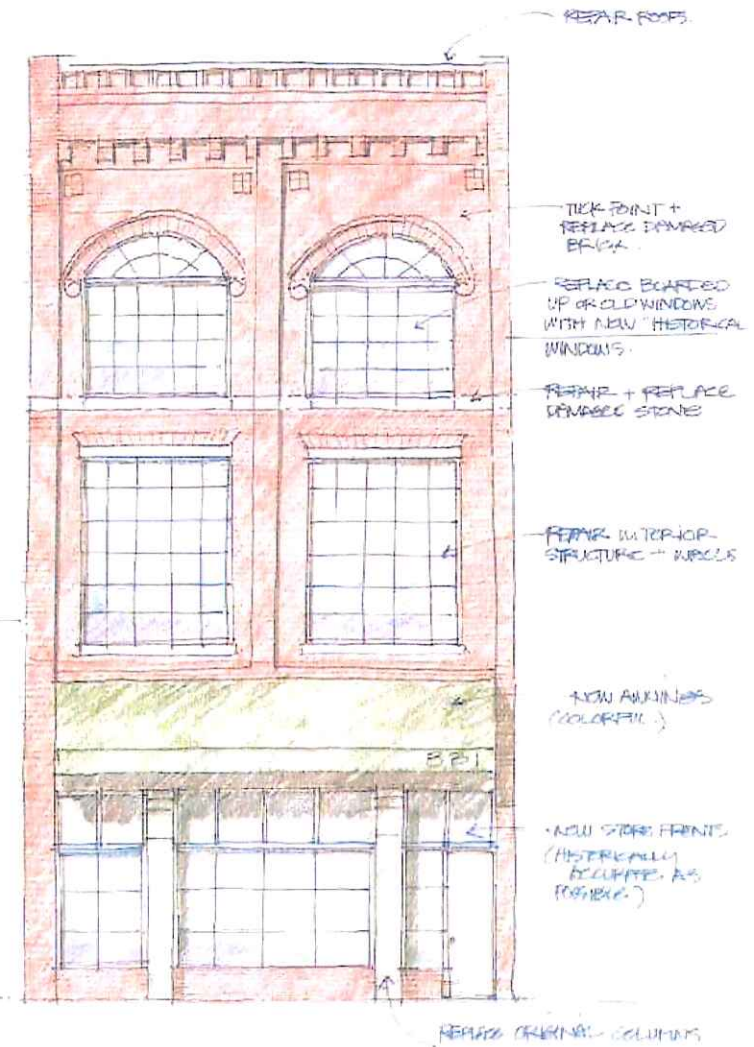 REPAIR ROOFS.
TUCK POINT +
REPLACE DAMAGED
BRICK.
REPLACE BOARDED
UP OR OLD WINDOWS
WITH NEW "HISTORICAL
WINDOWS.
REPAIR + REPLACE
DAMAGED STONE
REPAIR INTERIOR
STRUCTURE + WALLS
NEW AWNINGS
(COLORFUL)
881
NEW STORE FRONTS
(HISTORICALLY
ACCURATE AS
POSSIBLE)
REPLACE ORIGINAL COLUMNS